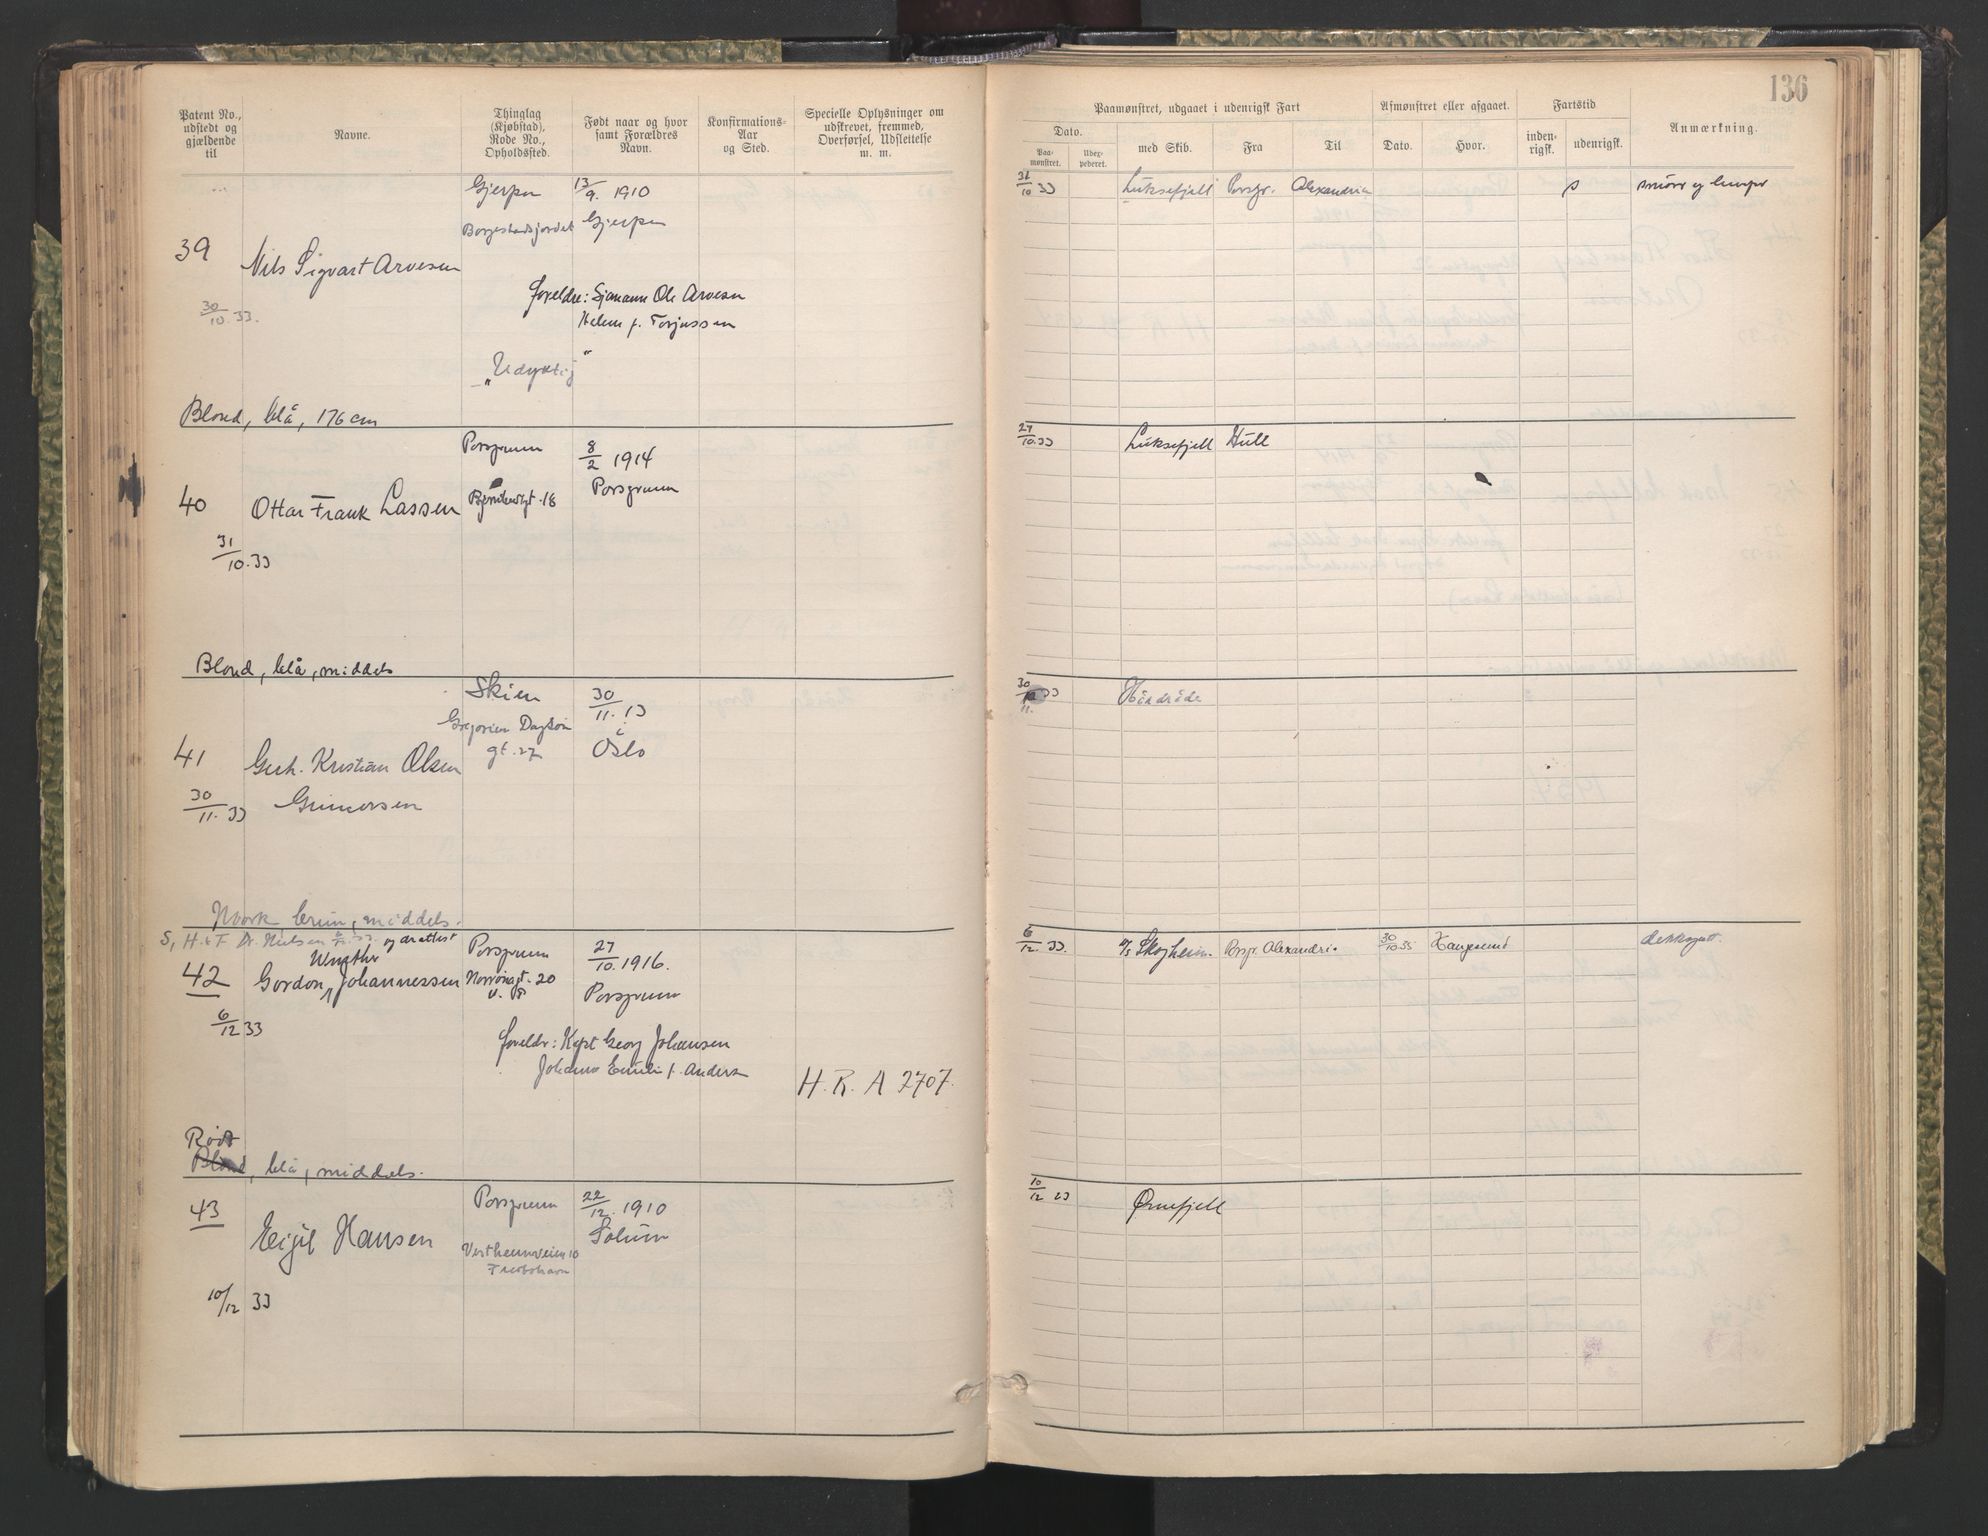 136
Patent No., udstedt og gjældende til
Navne.
Thinglag (Kjøbstad), Rode No., Opholdssted.
Født naar og hvor samt Forældres Navn.
Konfirmations-Aar og Sted.
Specielle Oplysninger om udskrevet, fremmed, Overførsel, Udslettelse m. m.
Paamønstret, udgaaet i udenrigsk Fart
Afmønstret eller afgaaet.
Fartstid
Anmærkning.
Dato.
Paa-mønstret.
Udex-pederet.
med Skib.
Fra
Til
Dato.
Hvor.
inden-rigsk.
udenrigsk.
Gjerpen 13/9. 1910
Borgestadsjordet Gjerpen
39 Nils Sigvart Arvesen
30/10.33.
foreldre: Sjømann Ole Arvesen
Helene f. Torjussen
"Udyktig"
Blond, blå, 176 cm
31/10 33 Luksefjell Porsgr. Alexandria
Porsgrunn 8/2 1914
40 Ottar Frank Lassen
18 Porsgrunn
31/10.33
Blond, blå, middels
27/10.33 Luksefjell Hull
Skien 30/11.13
Gregorius Dagson
gt. 27 i Oslo
41 Gerh. Kristian Olsen
30/11.33 Gunnersen
Mørk, brun, middels.
30/11. 33
S, H. & F Dr. Nielsen
og drattest
Winther
Porsgrunn 27/10.1916.
42 Gordon Johannessen
gt. 20
Porsgrunn
6/12 33
foreldr: Kapt Georg Johansen
Johanne Emilie f. Anders
H. R. A 2707.
Rødt
Blond, blå, middels.
6/12 33. Skogheim. Porsgr. Alexandria 30/10 35 Haugesund dekksgutt.
43 Porsgrunn 22/12. 1910
Eigil Hansen Solum
Vestheimveien 10
10/12 33
10/12 33 Ørnefjell